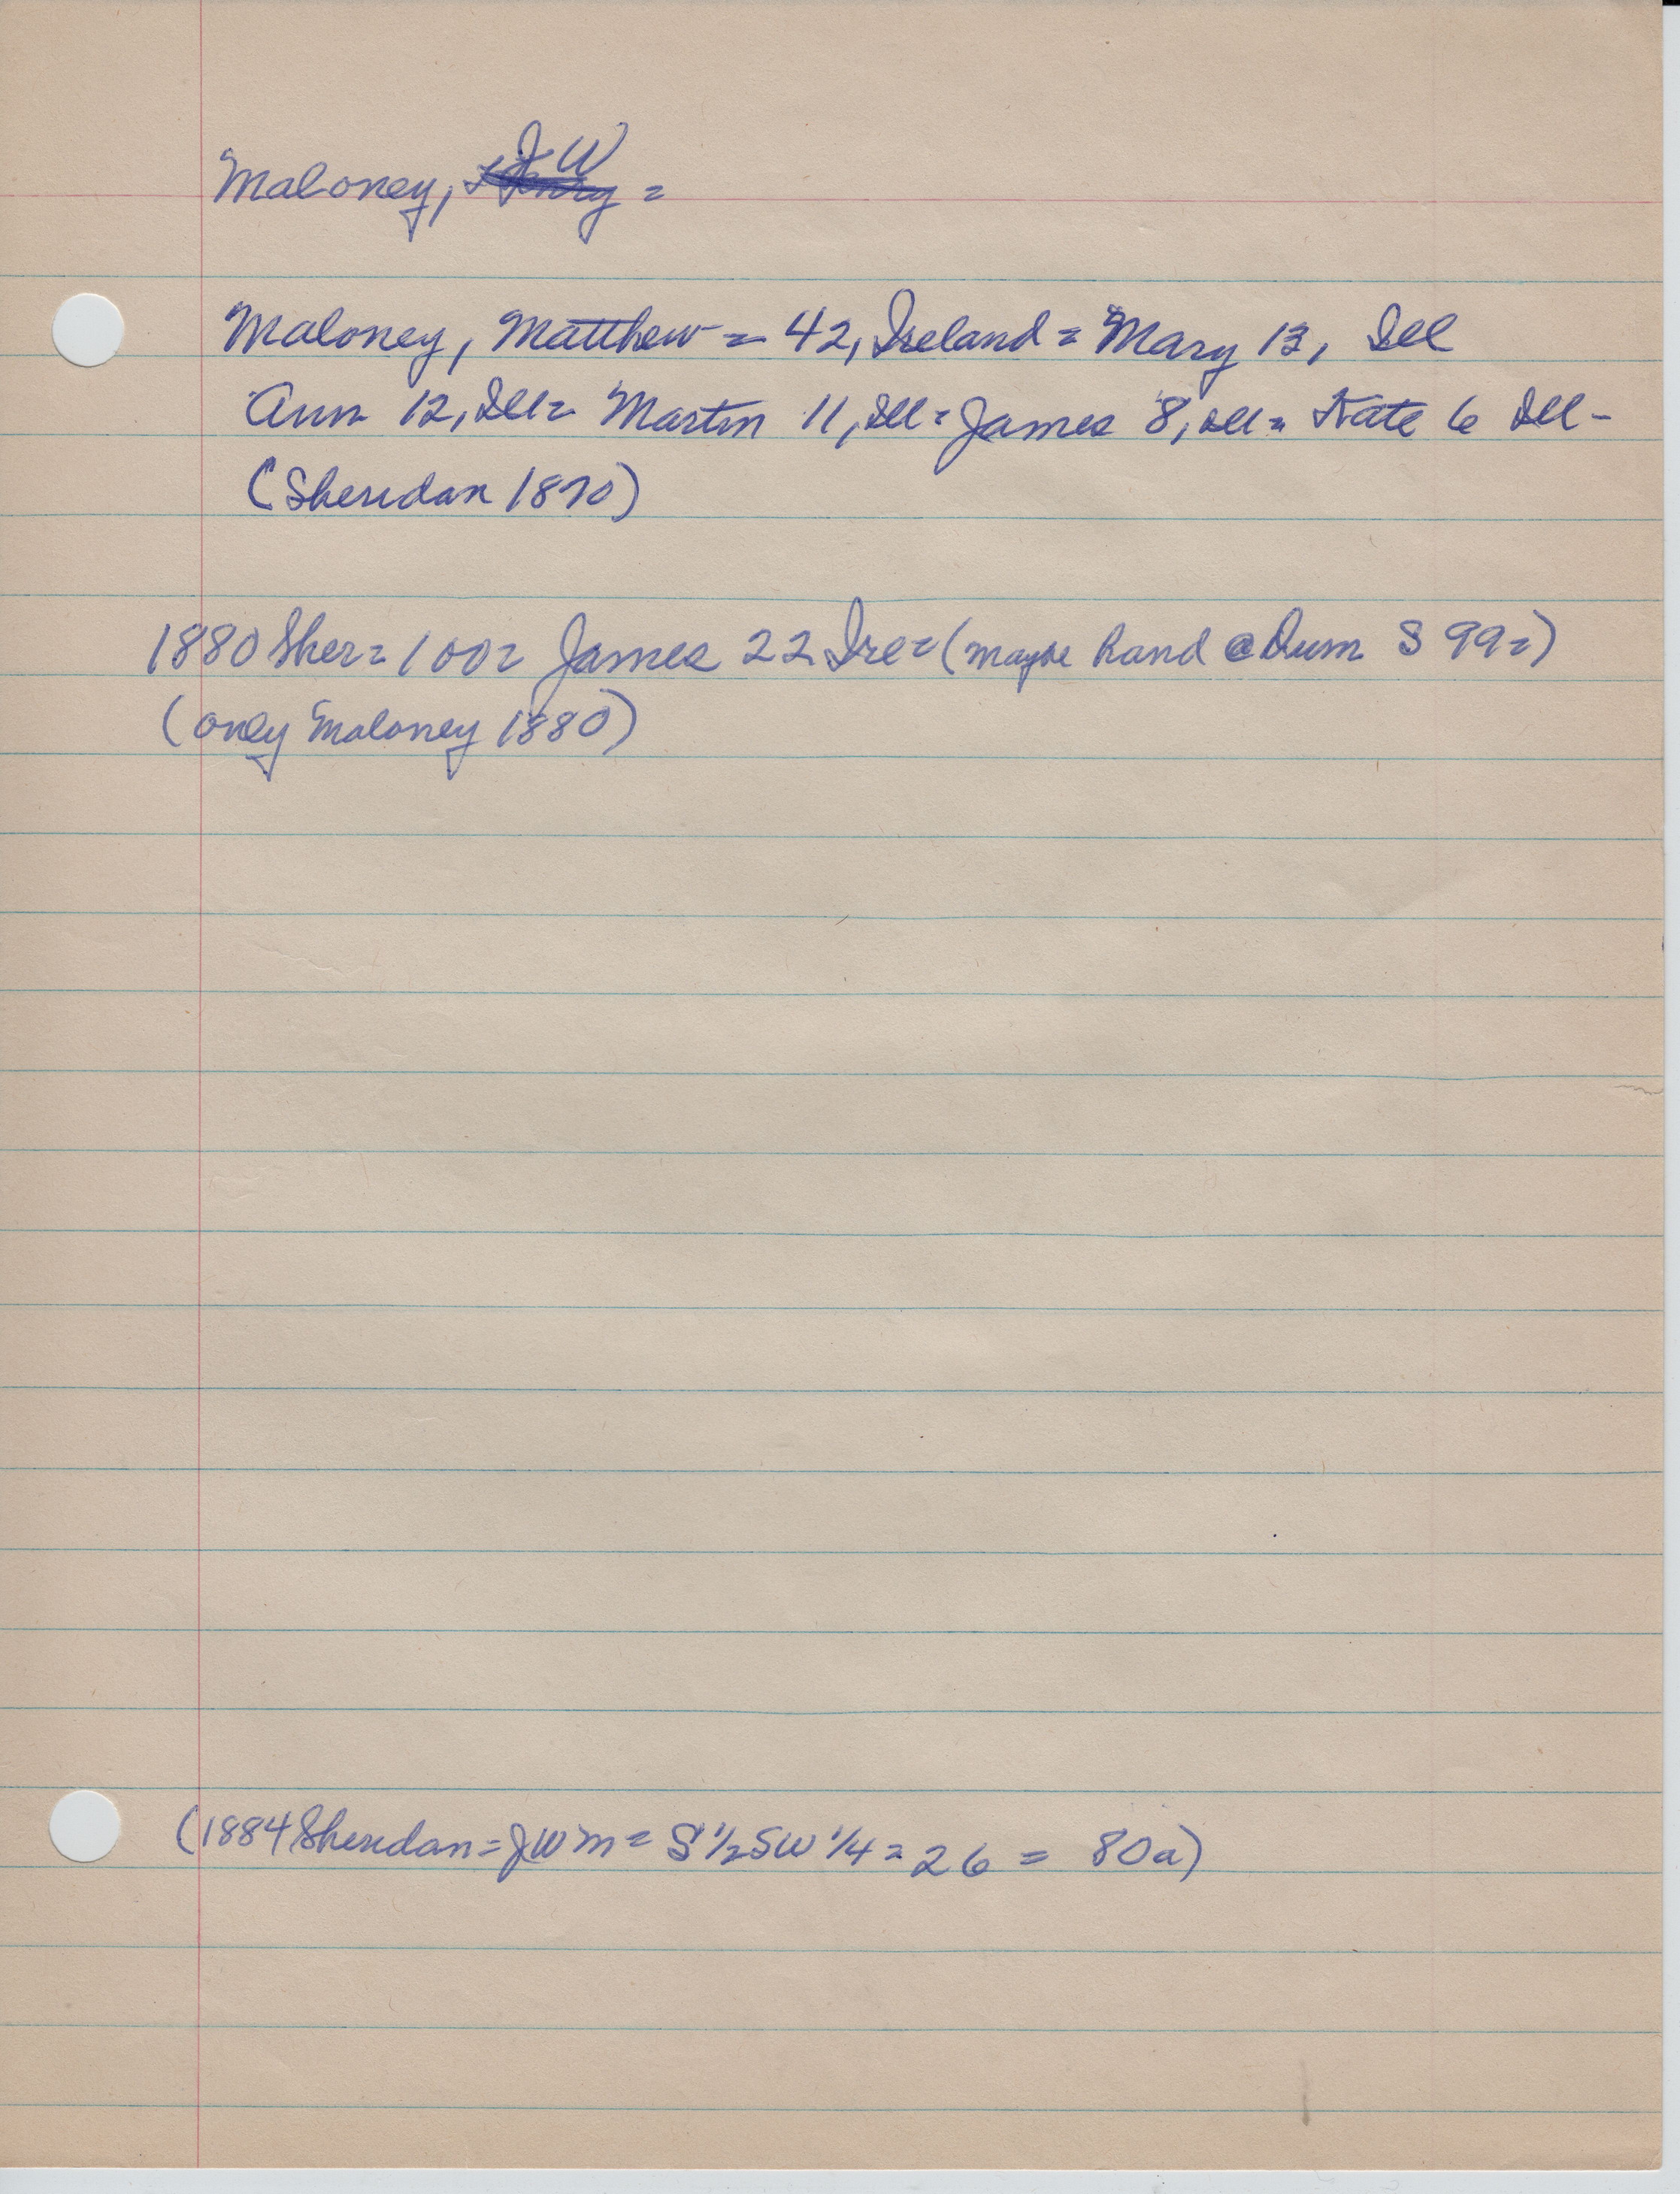 Maloney, J W =
Maloney, Matthew = 42, Ireland = Mary 13, Ill
Ann 12, Ill = Martin 11, Ill = James 8, Ill = Kate 6 Ill -
(Sheridan 1870)
1880 Sher = 100 = James 22 Ire = (maybe hand @ Dum S 99 =)
(only Maloney 1880)
(1884 Sheridan = J W M = S 1/2 SW 1/4 = 26 = 80a)